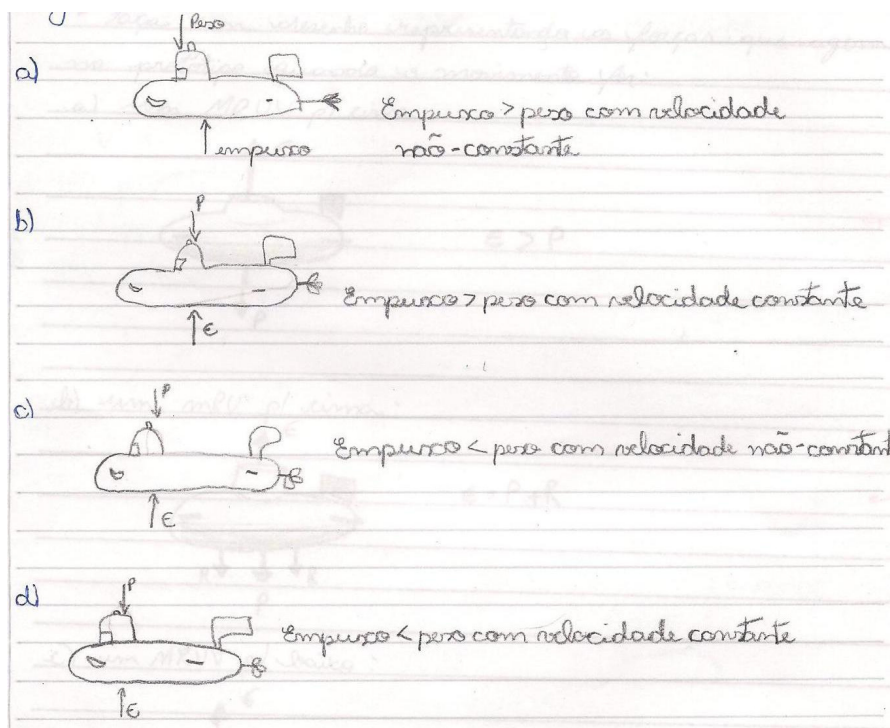 Peso
a)
Empuxo > peso com velocidade
não-constante
empuxo
b)
P
Empuxo > peso com velocidade constante
E
c)
P
Empuxo < peso com velocidade não-constant
E
d)
P
Empuxo < peso com velocidade constante
E